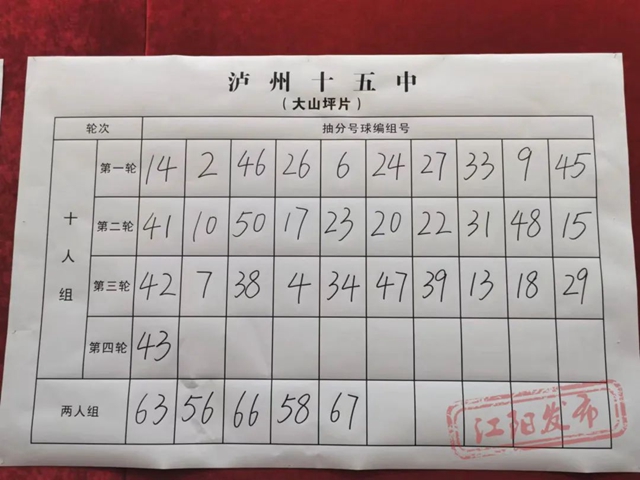 泸州十五中
(大山坪片)
轮次 抽分号球编组号
十人组
第一轮 14 2 46 26 6 24 27 33 9 45
第二轮 41 10 50 17 23 20 22 31 48 15
第三轮 42 7 38 4 34 47 39 13 18 29
第四轮 43
两人组 63 56 66 58 67
江阳发布